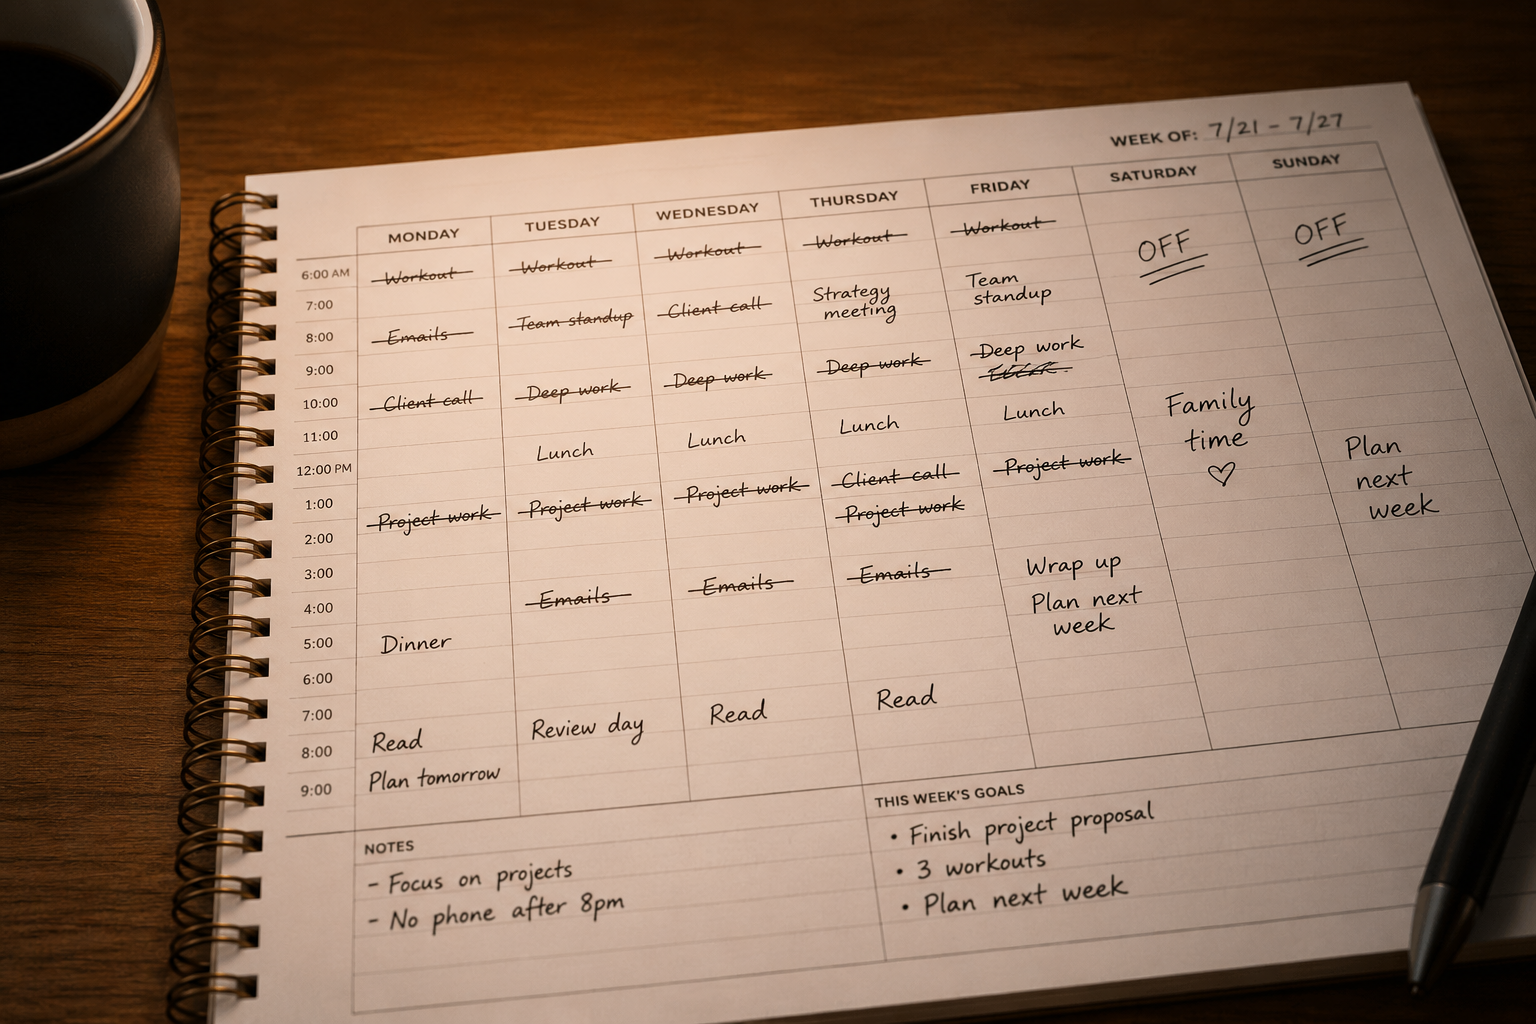 WEEK OF: 7/21 - 7/27
MONDAY TUESDAY WEDNESDAY THURSDAY FRIDAY SATURDAY SUNDAY
6:00 AM
7:00
8:00
9:00
10:00
11:00
12:00 PM
1:00
2:00
3:00
4:00
5:00
6:00
7:00
8:00
9:00
Workout
Emails
Client call
Project work
Dinner
Read
Plan tomorrow
Workout
Team standup
Deep work
Lunch
Project work
Emails
Review day
Workout
Client call
Deep work
Lunch
Project work
Emails
Read
Workout
Strategy
meeting
Deep work
Lunch
Client call
Project work
Emails
Read
Workout
Team
standup
Deep work
Lunch
Project work
Wrap up
Plan next
week
OFF
Family
time
♡
OFF
Plan
next
week
NOTES
- Focus on projects
- No phone after 8pm
THIS WEEK'S GOALS
• Finish project proposal
• 3 workouts
• Plan next week